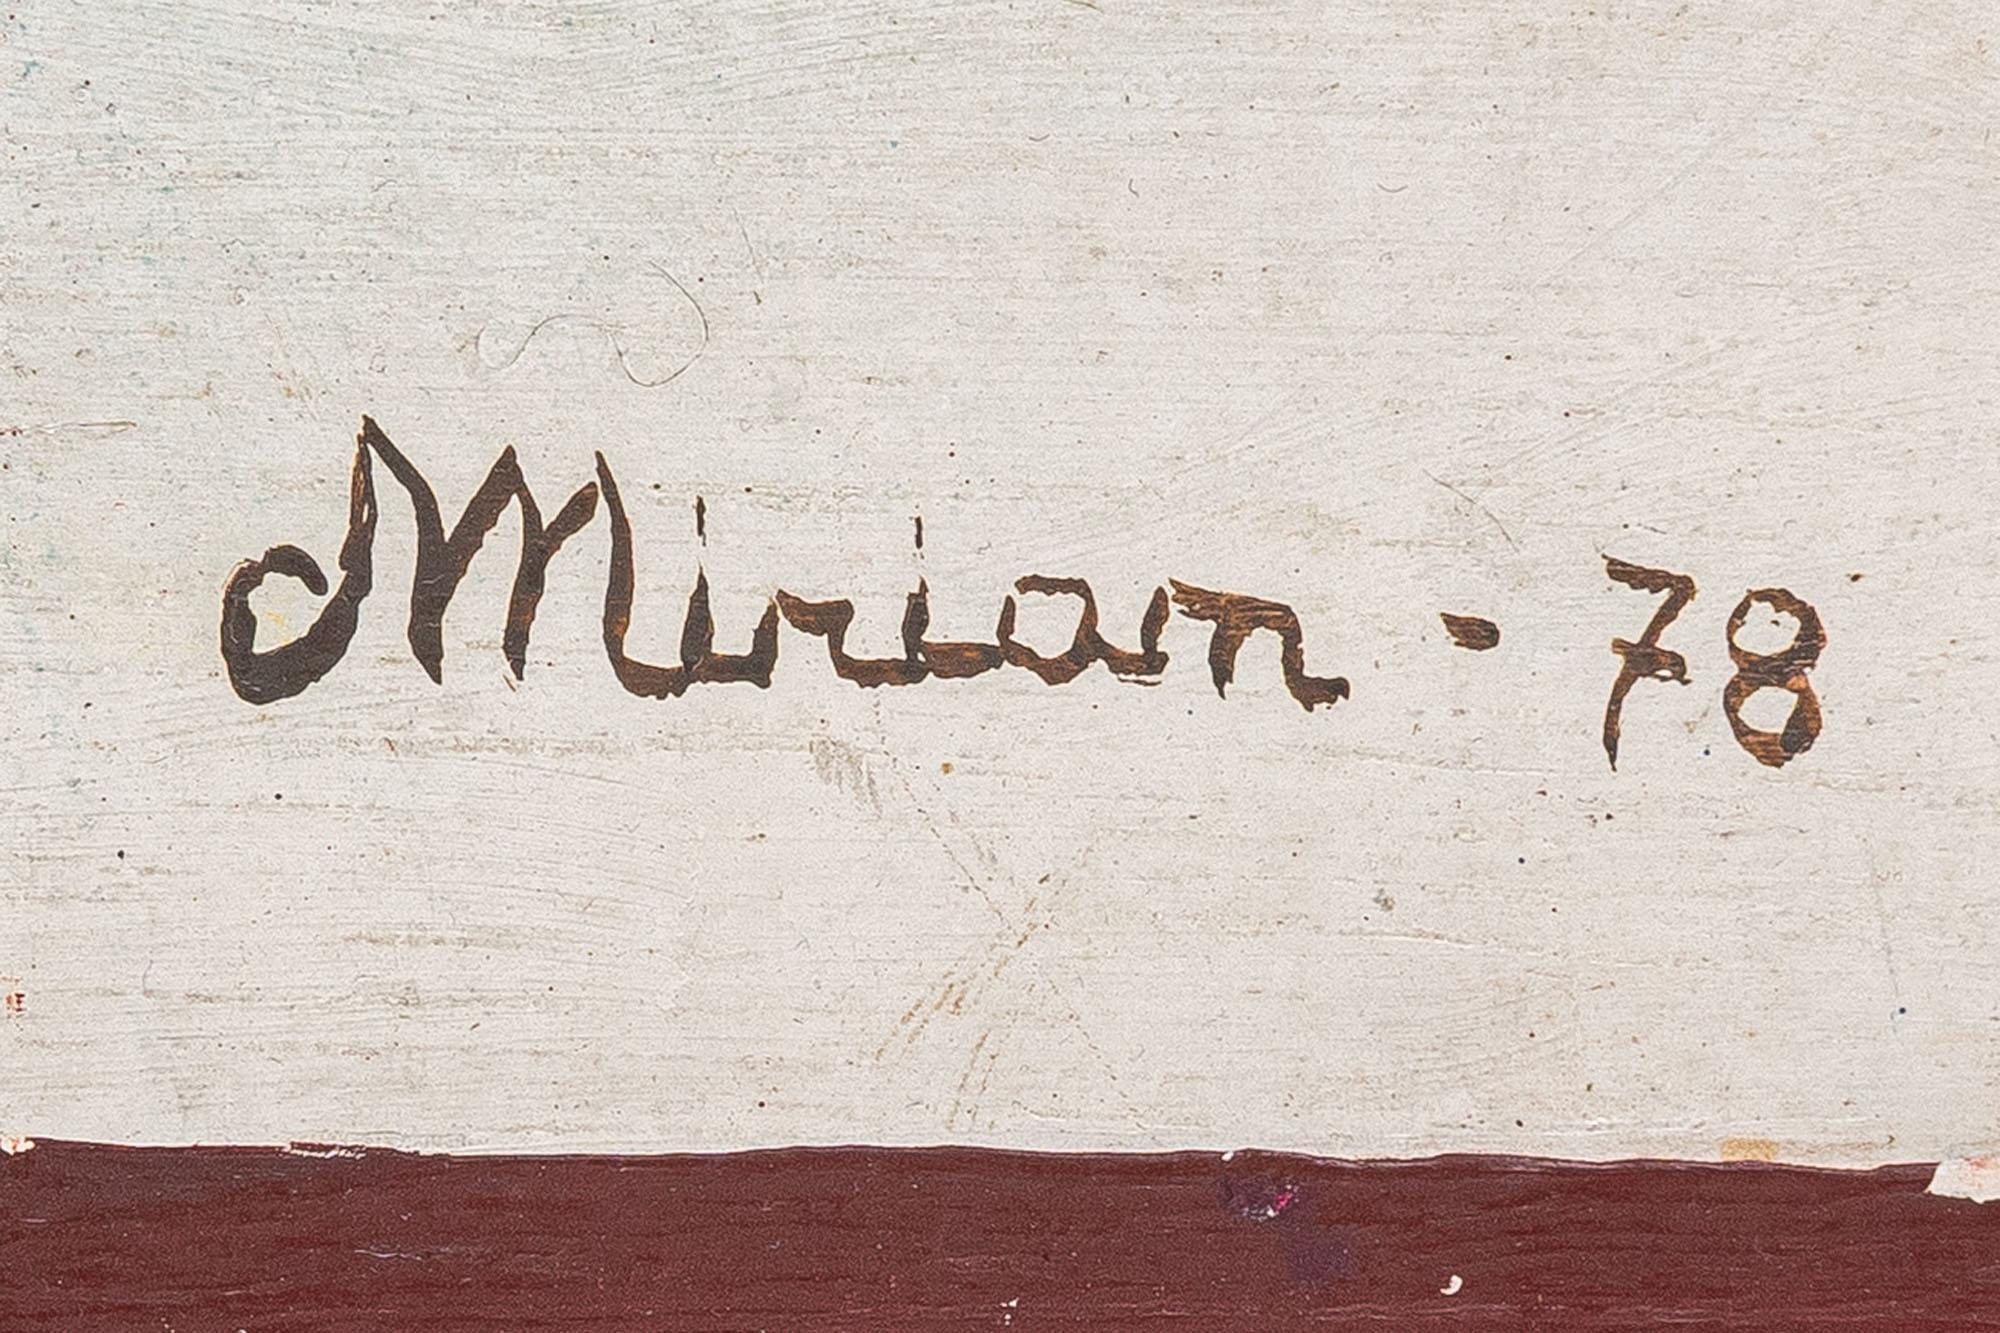 Miriam - 78